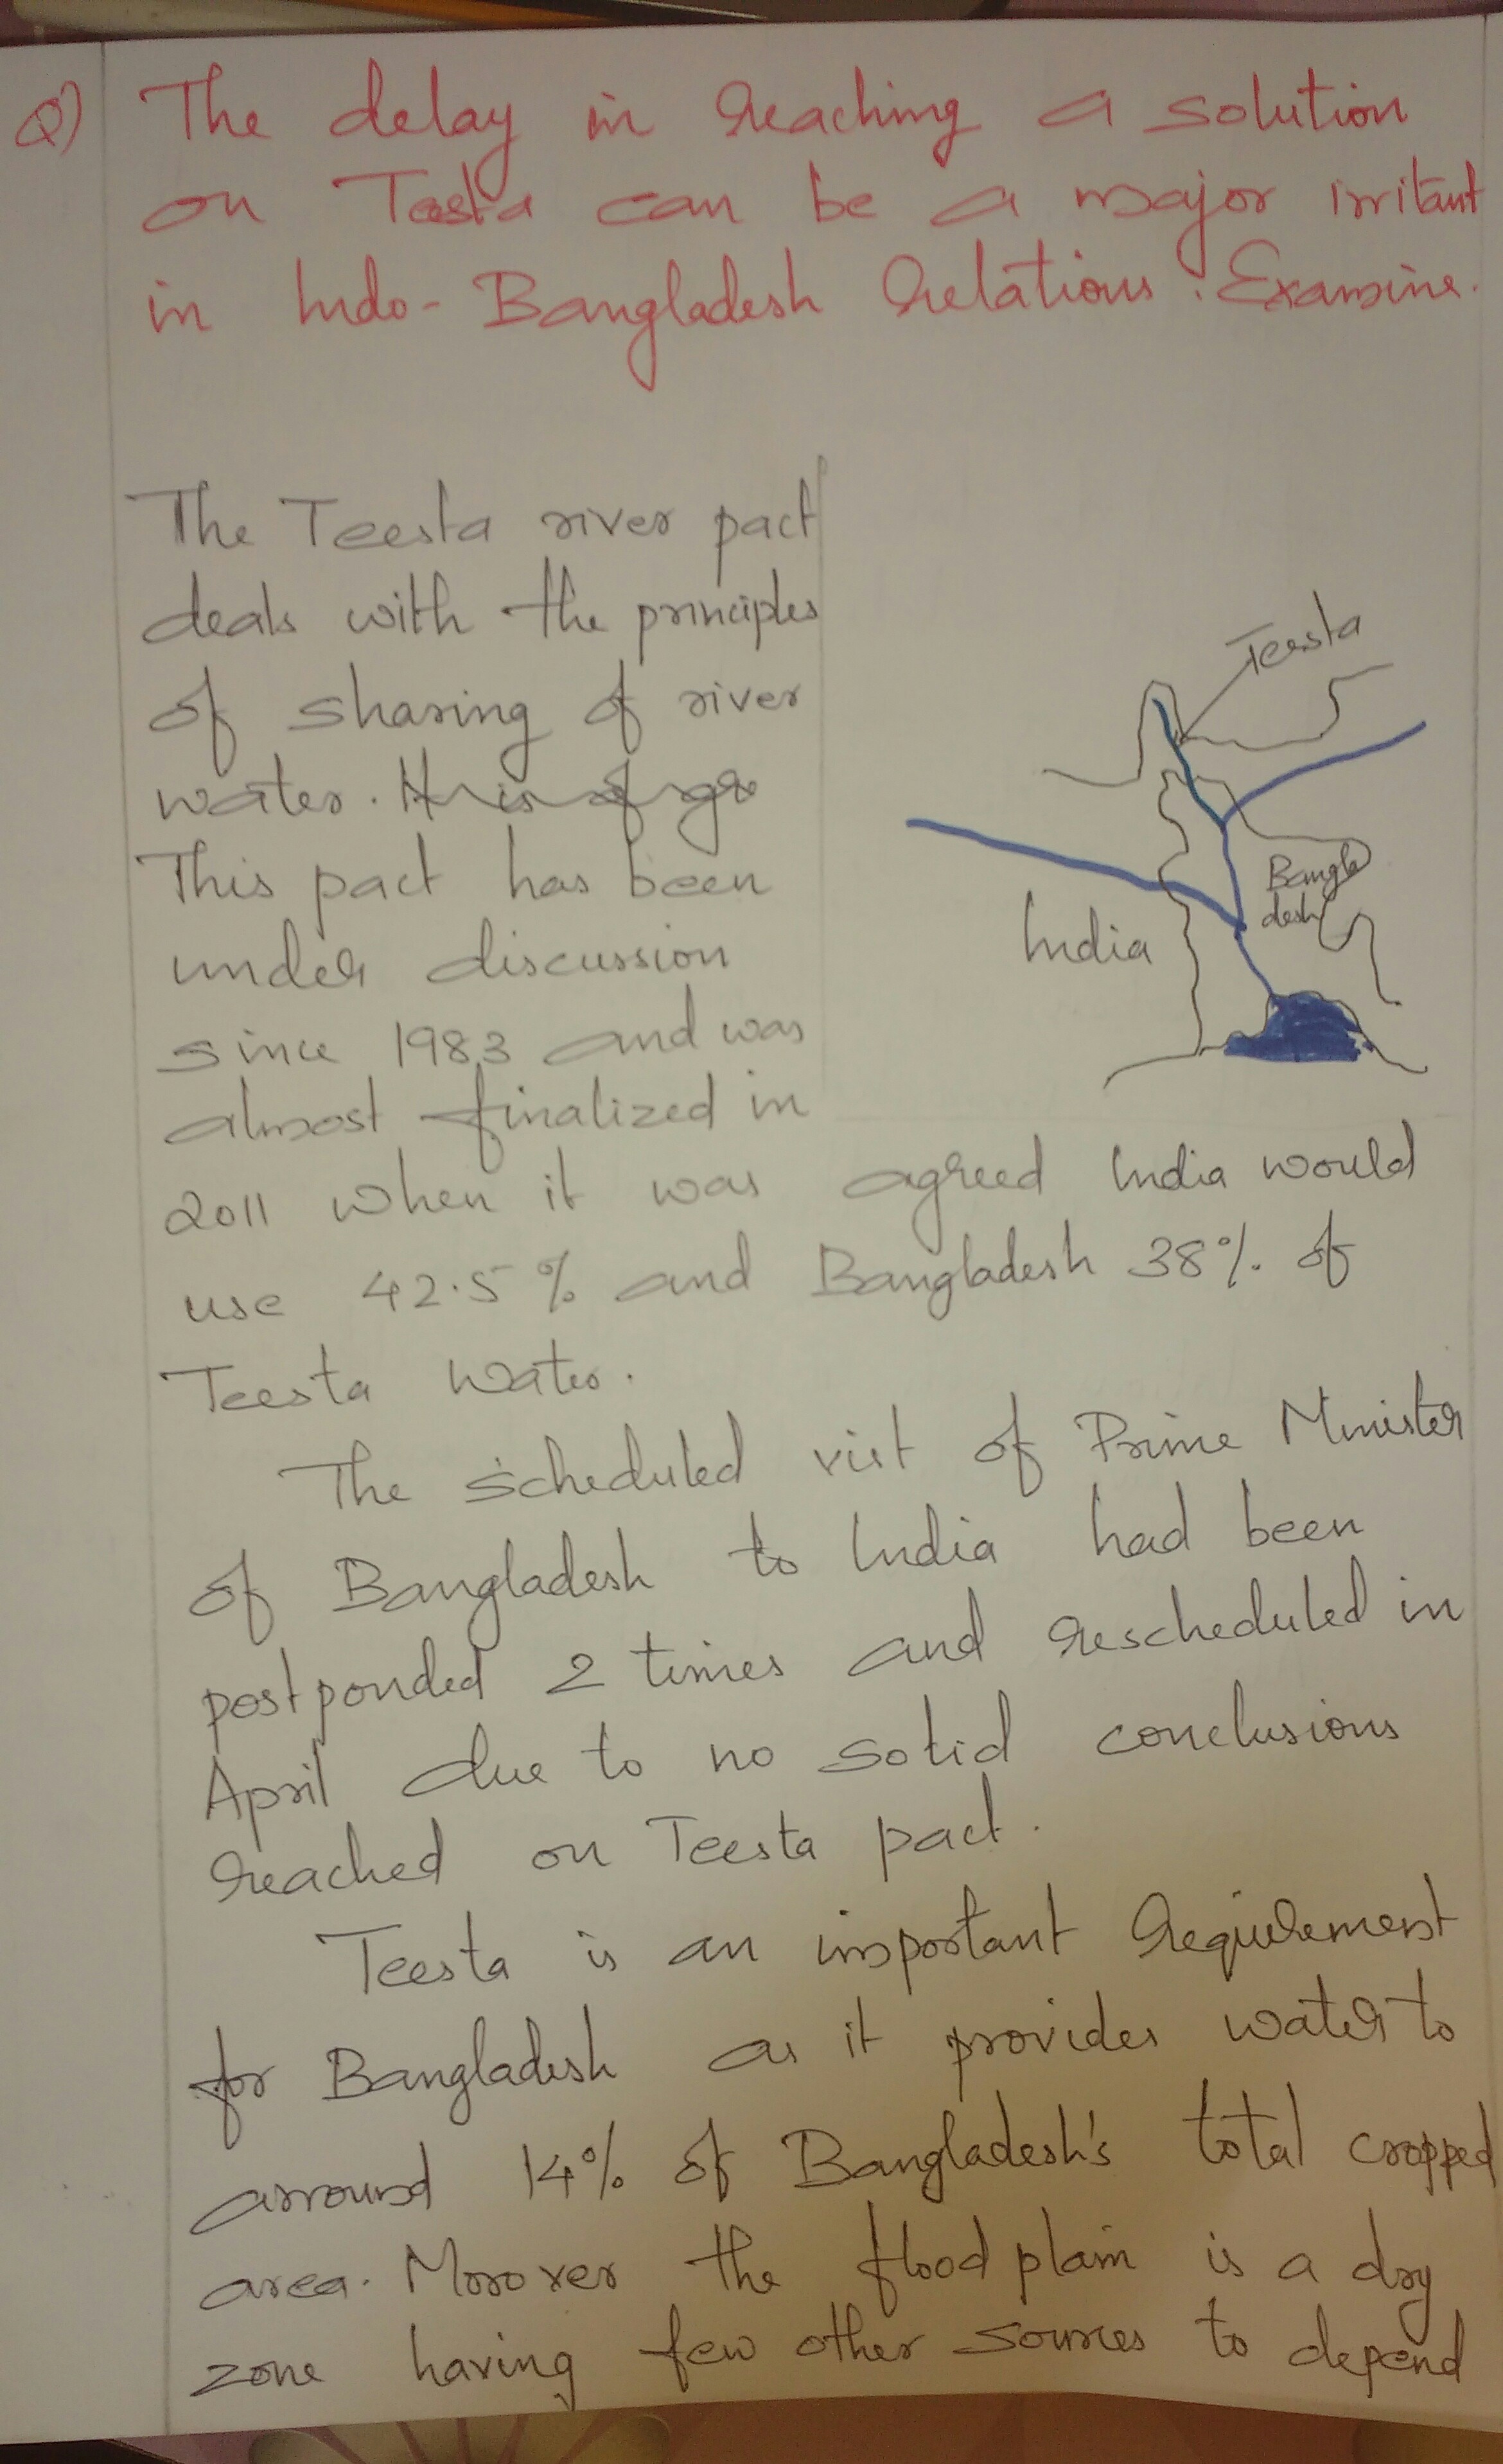 Q) The delay in reaching a solution
on Teesta can be a major irritant
in Indo-Bangladesh Relations. Examine.
The Teesta river pact
deals with the principles
of sharing of river
water. It is of gr
This pact has been
under discussion
since 1983 and was
almost finalized in
2011 when it was agreed India would
use 42.5% and Bangladesh 38% of
Teesta Water.
Teesta
India
Bangla
desh
The scheduled visit of Prime Minister
of Bangladesh to India had been
postponded 2 times and rescheduled in
April due to no solid conclusions
reached on Teesta pact.
Teesta is an important requirement
for Bangladesh as it provides water to
arround 14% of Bangladesh's total cropped
area. Morover the flood plain is a dry
zone having few other sources to depend